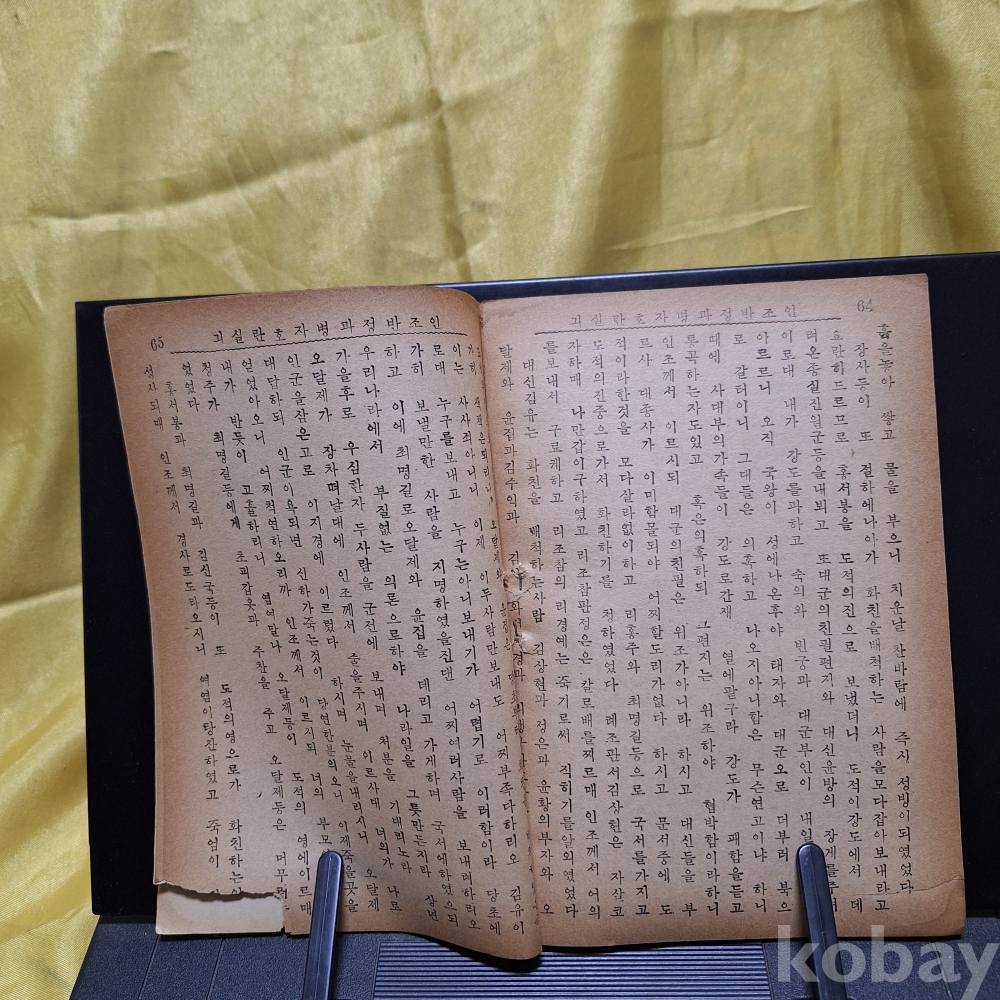 64
인조반정과병자호란실긔
흙을놓아 쌓고 물을 부으니 치운날 찬바람에 즉시 성빙이되였었다
장사등이 또 절하에나아가 화친을배척하는 사람을모다잡아보내라고
요란히드르므로 홍서봉을 도적의진으로 보냈더니 도적이강도에서 데
려온종실진원군등을내뵈고 또대군의친필편지와 대신윤방의 장게를주며
이로대 내가 강도를파하고 숙의와 빈궁과 대군부인이 내일
아르르니 오직 국왕이 성에나온후야 태자와 대군오로 더부러 북으
로 갈터이니 그대들은 의혹하고 나오지아니함은 무슨연고이냐 하니
때에 사대부의가속들이 강도로간제 열에팔구라 강도가 패함을듣고
통곡하는자도있고 혹은의혹하되 그편지는 위조하야 협박함이라하니
인조께서 이르시되 대군의친필은 위조가아니라 하시고 대신들을 부
르사 대종사가 이미함몰되야 어찌할도리가없다 하시고 문서중에 도
적이라한것을 모다살라없이하고 리홍주와 최명길등으로 국서를가지고
도적의진중으로가서 화친하기를 청하였었다 례조판서김상헌은 자살코
자하매 나만갑이구하였고 리조참판정온은 칼로배를찌르매 인조께서 어의
를보내서 구료케하고 리조참의리경예는 죽기로써 직히기를알외였었다
대신김유는 화친을 배척하는사람 김상현과 정온과 윤황의부자와 오
달제와 윤집과김수익과
65
인조반정과병자호란실긔
이는 사사죄아니니 이제 이두사람만보내도 어찌부족다하리오 김유이
로대 누구를보내고 누구는아니보내기가 어렵기로 이러함이라 당초에
가히 보낼만한 사람을 지명하였을진댄 어찌여러사람을 보내려하리오
하고 이에 최명길로오달제와 윤집을 데리고 가게하며 국서에하였으되
우리나라에서 부질없는 의론으로하야 나라일을 그릇만든지라 장년
가을후로 우심한자 두사람을 군전에 보내며 처분을 기대리노라
오달제가 장차떠날대에 인조께서 술을주시며 이르사대 너의가 나로
인군을삼은고로 이지경에 이르렀다 하시며 눈물을내리시니 오달제
대답하되 인군이욕되면 신하가죽는것이 당연한분의오니 이제죽을곳을
얻었아오니 어찌척연하오리까 인조께서 이르시되 너의 부모
내가 반듯이 고휼하리니 염여말나 오달제등이 도적의 영에이르매
청주가 최명길등에게 초피갑옷과 주찬을 주고 오달제등은 머무
였었다
홍서봉과 최명길과 김신국등이 또 도적의영으로가 화친하는
성사되매 인조께서 경사로도라오지니 여염이탕잔하였고 죽엄이
kobay